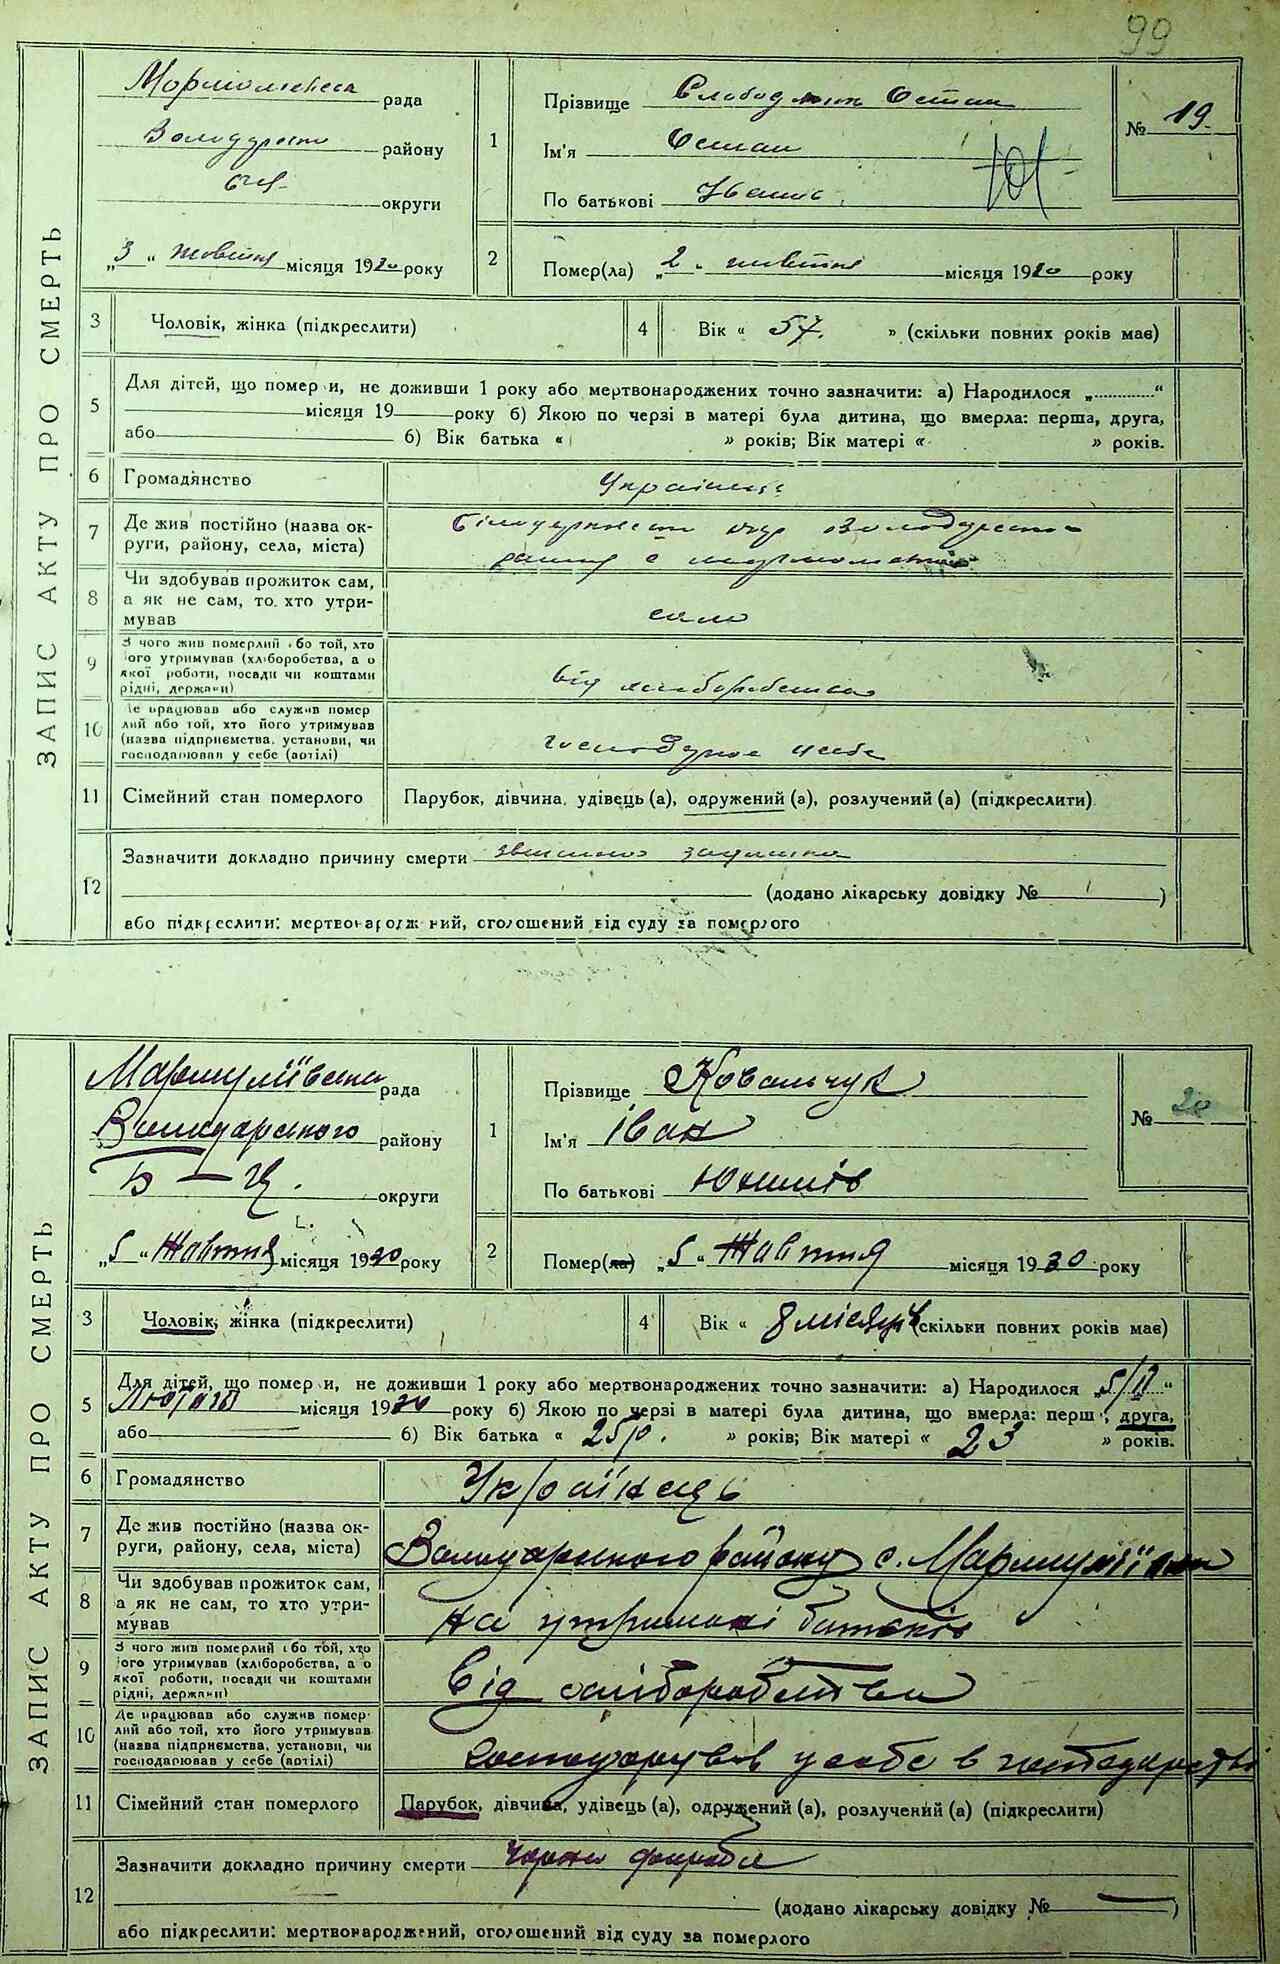 99
ЗАПИС АКТУ ПРО СМЕРТЬ
рада
району
округи
„3“ жовтня місяця 1930 року
1
Прізвище Слободяник Остап
Ім'я Остап
По батькові
№ 19
2
Помер(ла) „2“ жовтня місяця 1930 року
3
Чоловік, жінка (підкреслити)
4
Вік « 57. » (скільки повних років має)
5
Для дітей, що помер и, не доживши 1 року або мертвонароджених точно зазначити: а) Народилося „ “
місяця 19 року б) Якою по черзі в матері була дитина, що вмерла: перша, друга,
або б) Вік батька « » років; Вік матері « » років.
6
Громадянство Українець
7
Де жив постійно (назва ок-
руги, району, села, міста)
8
Чи здобував прожиток сам,
а як не сам, то хто утри-
мував
само
9
З чого жив померлий або той, хто
його утримував (хліборобства, а о
якої роботи, посади чи коштами
рідні, держави)
від хліборобства
10
Де працював або служив помер
лий або той, хто його утримував
(назва підприємства, установи, чи
господарював у себе (вотілі)
у себе
11
Сімейний стан померлого
Парубок, дівчина, удівець (а), одружений (а), розлучений (а) (підкреслити)
12
Зазначити докладно причину смерти
(додано лікарську довідку № )
або підкреслити: мертвонароджений, оголошений від суду за померлого
ЗАПИС АКТУ ПРО СМЕРТЬ
Мармуліївська рада
Володарського району
Б-Ц. округи
„5“ Жовтня місяця 1930 року
1
Прізвище Ковальчук
Ім'я Іван
По батькові
№ 20
2
Помер(ла) „5“ Жовтня місяця 1930 року
3
Чоловік, жінка (підкреслити)
4
Вік « 8 місяців (скільки повних років має)
5
Для дітей, що помер и, не доживши 1 року або мертвонароджених точно зазначити: а) Народилося „5/II“
Лютого місяця 1930 року б) Якою по черзі в матері була дитина, що вмерла: перш , друга,
або б) Вік батька « 25 р. » років; Вік матері « 23 » років.
6
Громадянство Українець
7
Де жив постійно (назва ок-
руги, району, села, міста)
Володарського району с. Мармуліївка
8
Чи здобував прожиток сам,
а як не сам, то хто утри-
мував
на утримані батьків
9
З чого жив померлий або той, хто
його утримував (хліборобства, а о
якої роботи, посади чи коштами
рідні, держави)
Від хліборобства
10
Де працював або служив помер-
лий або той, хто його утримував
(назва підприємства, установи, чи
господарював у себе (вотілі)
господарував у себе в господарстві
11
Сімейний стан померлого
Парубок, дівчина, удівець (а), одружений (а), розлучений (а) (підкреслити)
12
Зазначити докладно причину смерти
(додано лікарську довідку № )
або підкреслити: мертвонароджений, оголошений від суду за померлого